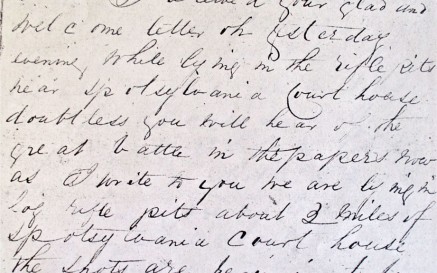 I received your glad and
welcome letter on yesterday
evening while lying in the rifle pits
near Spotsylvania Court house
doubtless you will hear of the
great battle in the papers now
as I write to you we are lying in
log rifle pits about 3 miles of
Spotsylvania Court house
the shots are